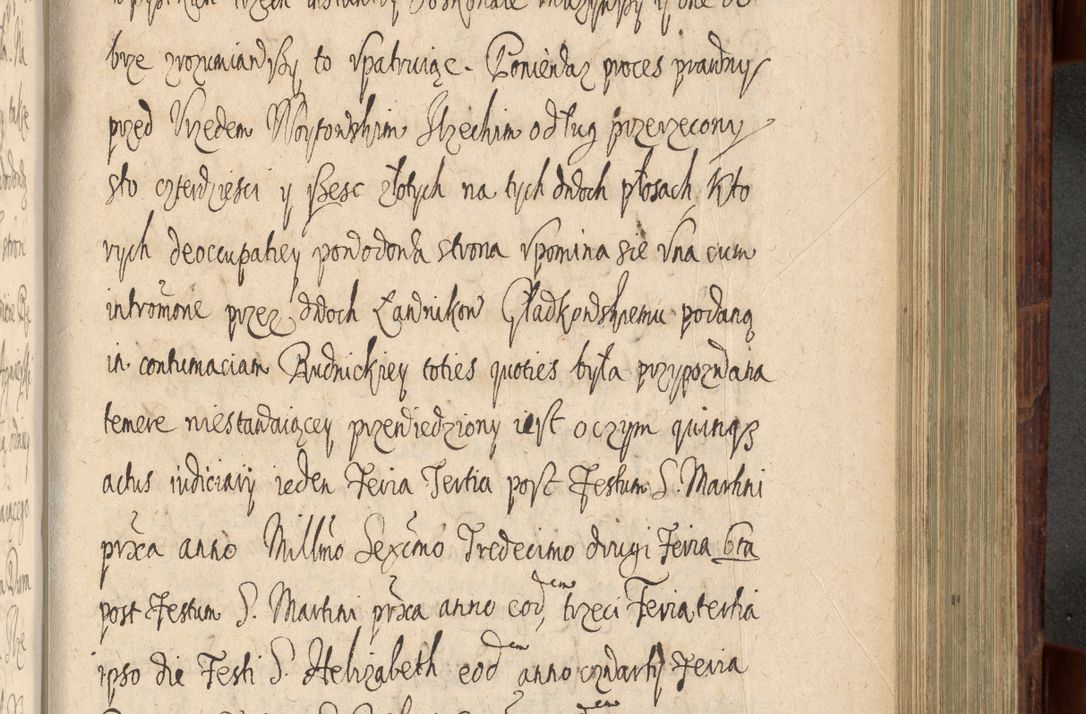 brze zrozumiawszy to vpatruiąc. Ponieważ proces prawny
przed Vrzędem Woytowskim Ilzeckim odług przerzecony
sto czterdzieści y szesc złotych na tych dwoch płosach, Kto
rych deoccupatiey powodowa strona vpomina sie vna cum
intromone przez dwoch Ławnikow Gładkowskiemu podaną
in contumaciam Rudnickiey toties quoties była przypozwana
temere niestawaiącey przewiedziony iest o czym quinqz
actus iudiciarij ieden Feria Tertia post Festum S. Martini
prxa anno Millmo Sexcmo Tredecimo drugi Feria 6ta
post Festum S. Martini prxa anno eodem trzeci Feria tertia
ipso die Festi S. Helizabeth eodem anno czwarty Feria